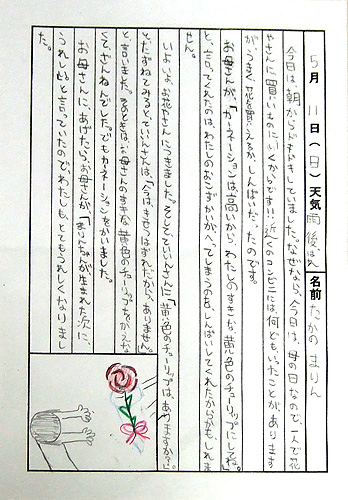 5月11日(日)天気 雨後はれ 名前 たかの まりん
今日は、朝からドキドキしていました。なぜなら、今日は、母の日なので、一人で花
やさんに買いものにいくからです!!近くのコンビニには、何どもいったことがあります
が、うまく、花を買いえるか、しんぱいだったのです。
お母さんが、「カーネーションは高いから、わたしのすきな、黄色のチューリップにしてね」
と、言ってくれたのは、わたしのおこずかいがへってしまうのを、しんぱいしてくれたからかも、しれま
せん。
いよいよ、お花やさんにつきました。そして、ていいんさんに、「黄色のチューリップは、ありますか?」
と、たずねてみると、ていいんさんは、「今は、きせつはずれだから、ありません。」
と、言いました。そのときは、お母さんのすきな黄色のチューリップをかえな
くて、ざんねんでした。でもカーネーションをかいました。
お母さんに、あげたら、お母さんが、「まりんちゃんが生まれた次に、
うれしい。」と言っていたので、わたしも、とてもうれしくなりまし
た。